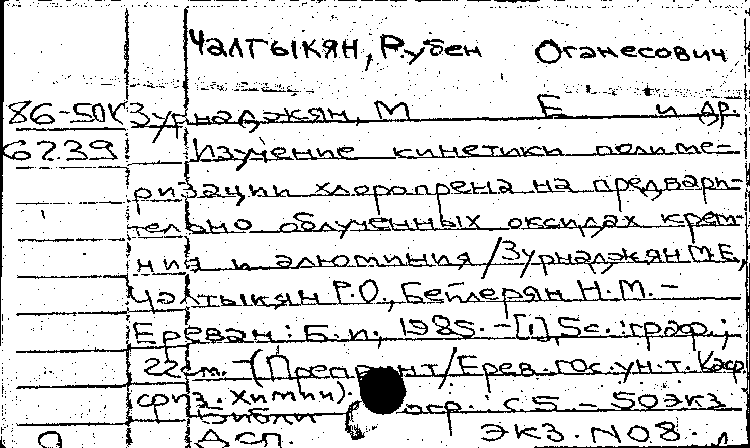 Чалтыкян, Рубен Оганесович
86-50К Зурнаджян, М Е и др.
6239 Изучение кинетики полиме=
ризации хлоропрена на предвари=
тельно облученных оксидах крем=
ния и алюминия / Зурнаджян М.Е.,
Чалтыкян Р.О., Бейлерян Н.М. –
Ереван: Б. и., 1985. – [1], 5 с.: граф.;
22 см. – (Препринт / Ерев. гос. ун-т. Каф.
физ. химии).
Библиогр.: с. 5 – 50 экз.
Дсп. экз. N08.